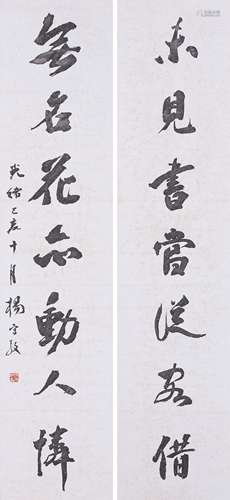 未見書嘗從客借
無名花亦動人憐
光緒乙亥十月楊守敬